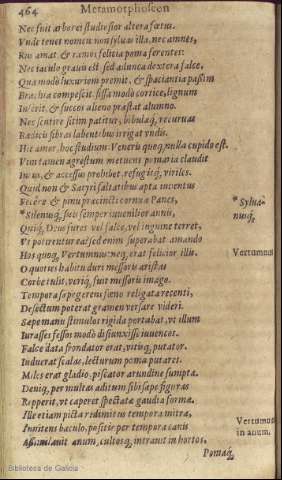 464 Metamorphoseon
Nec fuit arborei studiosior altera fœtus.
Vnde tenet nomen: non syluas illa, nec amnes,
Rus amat & ramos felicia poma ferentes:
Nec iaculo grauis est sed adunca dextera falce,
Qua modò luxuriem premit, & spaciantia passim
Brachia compescit. fissa modò cortice, lignum
Inserit, & succos alieno præstat alumno.
Nec sentire sitim patitur, bibulæq; recuruas
Radicis fibras labentibus irrigat vndis.
Hic amor, hoc studium: Veneris quoq; nulla cupido est.
Vim tamen agrestum metuens pomaria claudit
Intus, & accessus prohibet, refugitq; viriles.
Quid non & Satyri saltatibus apta iuuentus
Fecêre & pinu præcincti cornua Panes,
*Silenusq; suis semper iuuenilior annis,
*Sylua-
nusq;
Quiq; Deus fures vel falce, vel inguine terret,
Vt potirentur ea? sed enim superabat amando
Hos quoq; Vertumnus: neq; erat felicior illis.
Vertumnus
O quoties habitu duri messoris aristas
Corbe tulit, veriq; fuit messoris imago.
Tempora sæpe gerens fæno religata recenti,
Desectum poterat gramen versare videri.
Sæpe manu stimulos rigida portabat, vt illum
Iurasses fessos modò disiunxisse iuuencos.
Falce data frondator erat, vitisq; putator.
Induerat scalas, lecturum poma putares.
Miles erat gladio, piscator arundine sumpta.
Deniq; per multas aditum sibi sæpe figuras
Repperit, vt caperet spectatæ gaudia formæ.
Ille etiam picta redimitus tempora mitra,
Vertumnus
in anum.
Innitens baculo, positis per tempora canis
Assimilauit anum, cultosq; intrauit in hortos,
Pomaq;
Biblioteca de Galicia